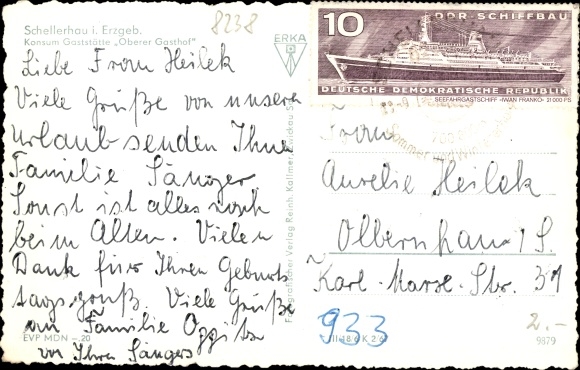 8238
Schellerhau i. Erzgeb.
Konsum Gaststätte „Oberer Gasthof"
Liebe Frau Heilek
Viele Grüße von unserem
Urlaub senden Ihnen
Familie Sänger
Sonst ist alles noch
beim Alten. Vielen
Dank für Ihren Geburts
tagsgruß. Viele Grüße
an Familie
von Ihren Sängers
EVP MDN -,20
ERKA
Fotografischer Verlag Reinh. Kallmer, Zwickau
10
DDR-SCHIFFBAU
DEUTSCHE DEMOKRATISCHE REPUBLIK
SEEFAHRGASTSCHIFF »IWAN FRANKO« 21 000 PS
Frau
Aurelie Heilek
Olbernhau / S.
Karl-Marx-Str. 31
933
2.-
9879